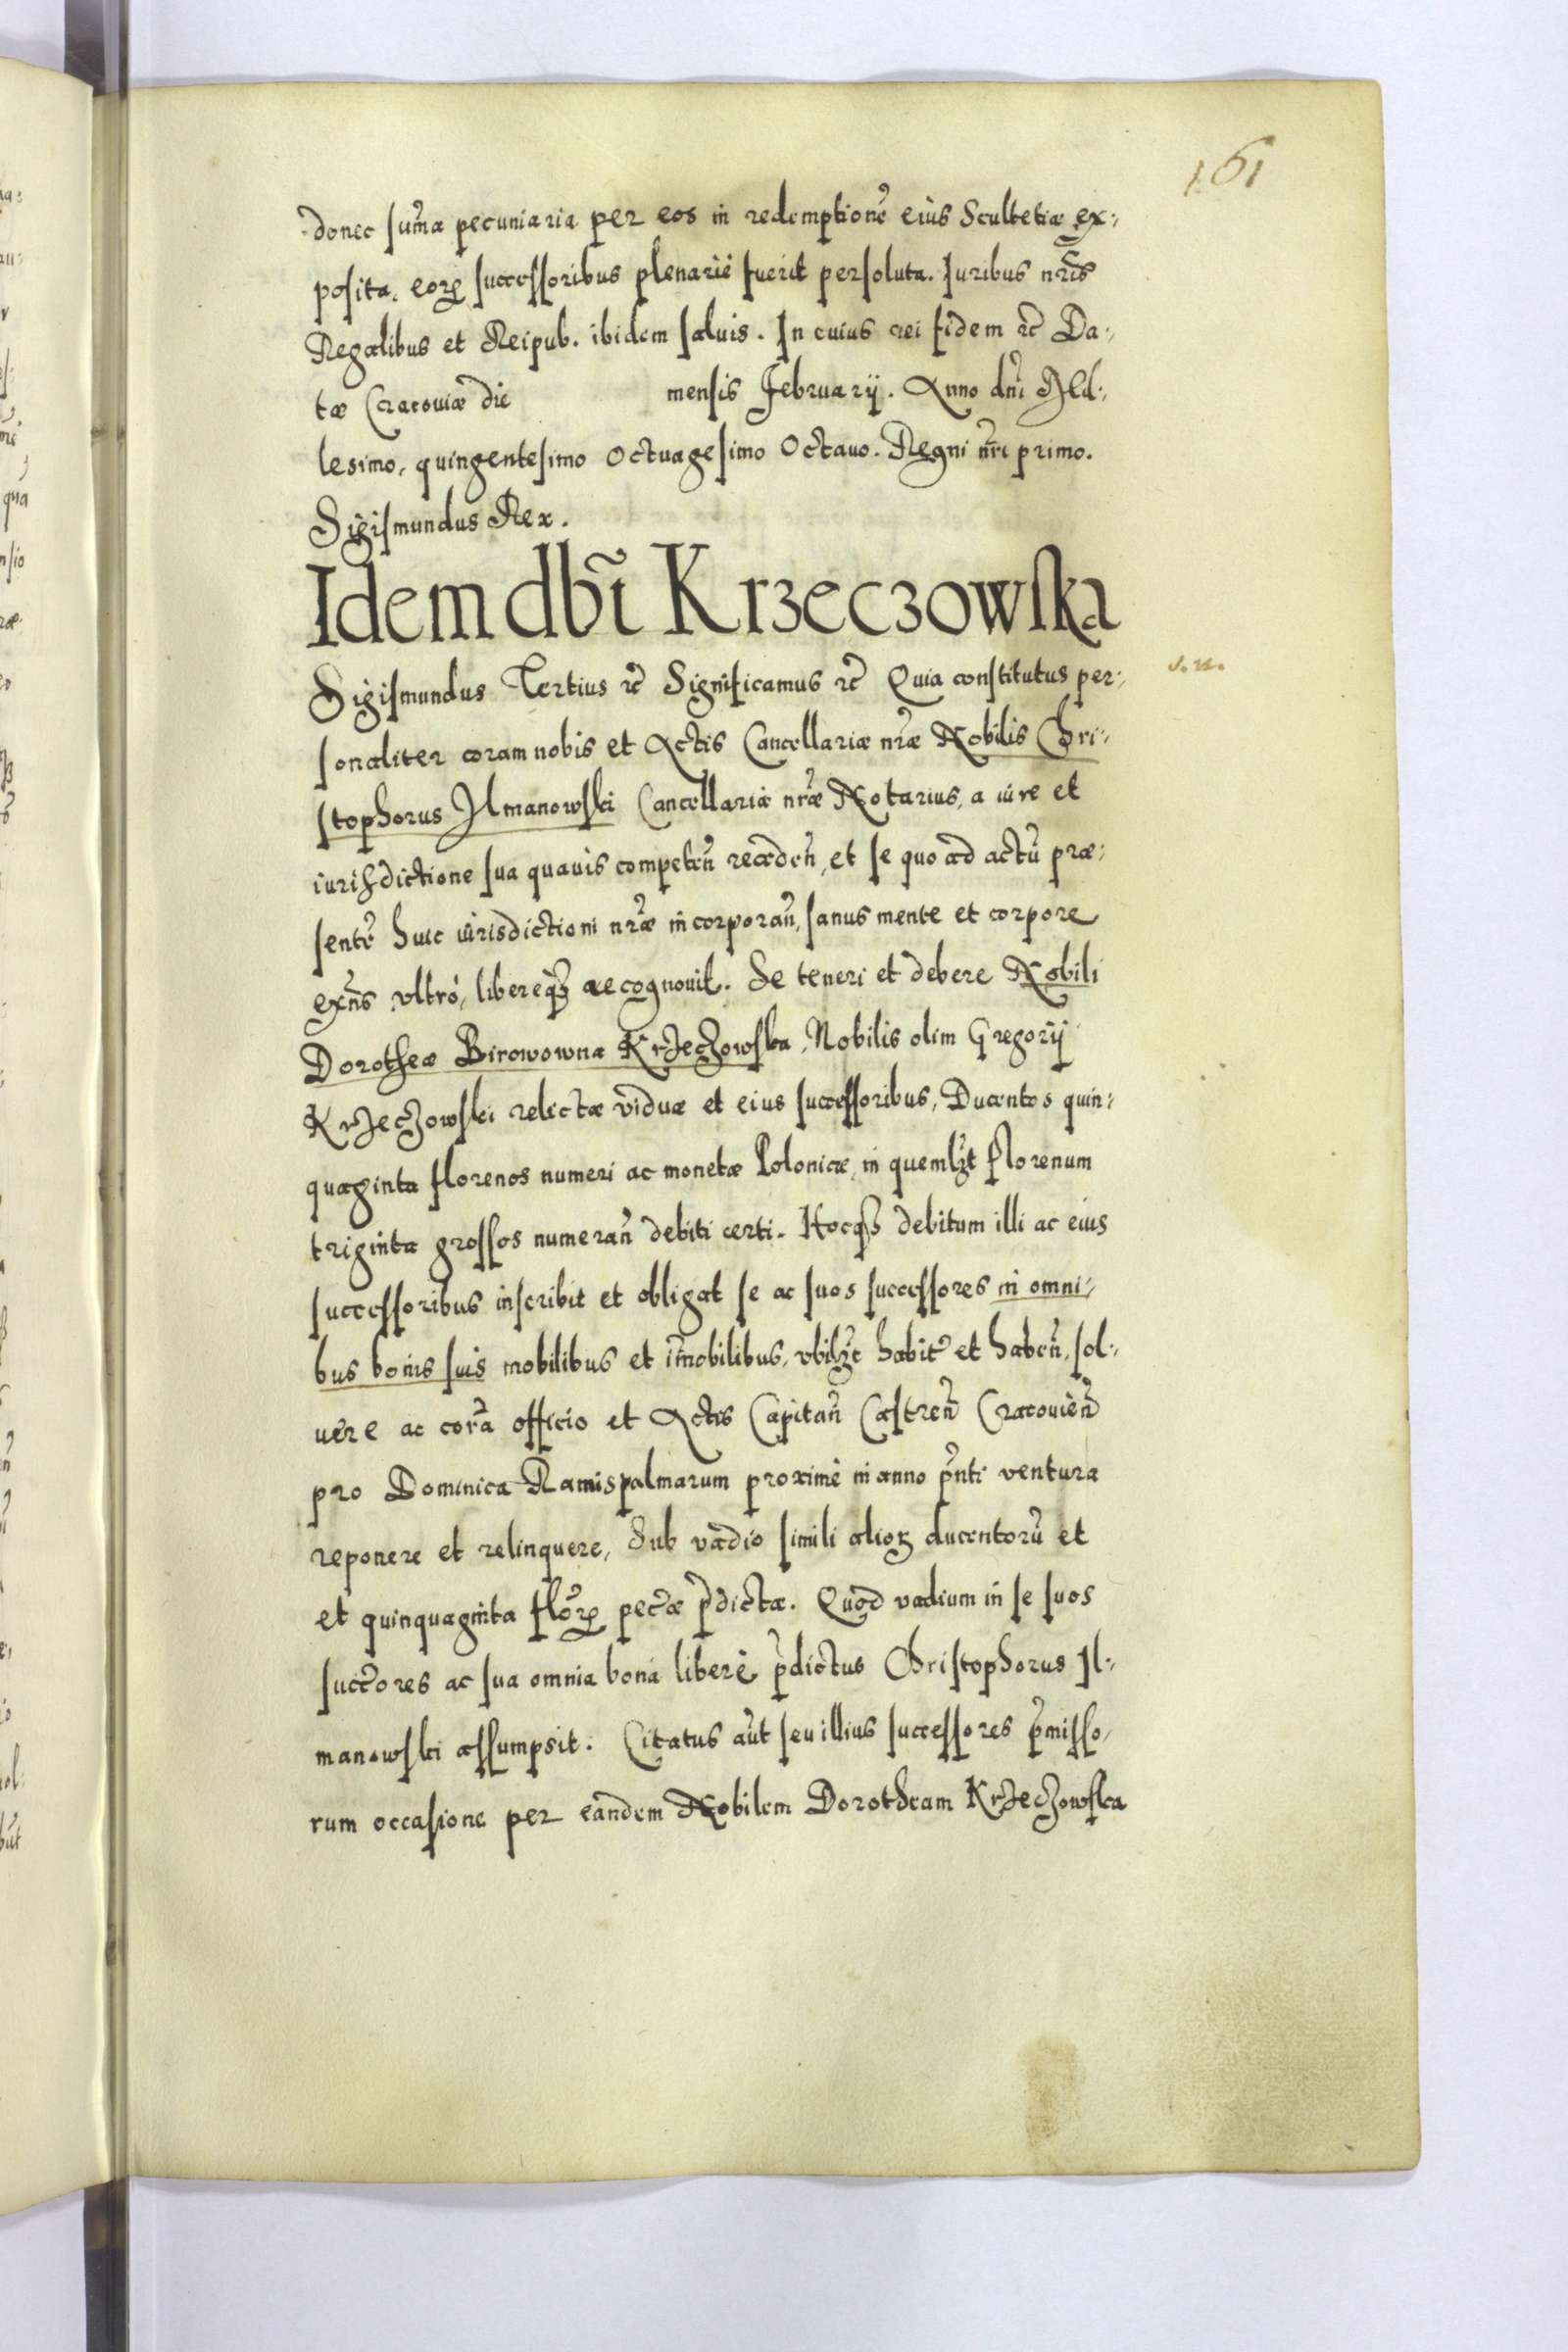 161
donec sum̃a pecuniaria per eos in redemptionẽ eius Scultetiæ ex-
posita, eorꝝ successoribus plenariè fuerit persoluta. Iuribus nr̃is
Regalibus et Reipub. ibidem saluis. In cuius rei fidem ꝛc̃ Da-
tæ Cracouiæ die mensis Februarij. Anno dñi Mil-
lesimo, quingentesimo Octuagesimo Octauo. Regni nr̃i primo.
Sigismundus Rex.
Idem db̃t Krzeczowska
Sigismundus Tertius ꝛc̃ Significamus ꝛc̃ Quia constitutus per-
sonaliter coram nobis et Actis Cancellariæ nr̃æ Nobilis Chri-
stophorus Ilmanowski Cancellariæ nr̃æ Notarius, a iure et
iurisdictione sua quauis competeñ recedeñ, et se quo ad actũ præ-
sentẽ huic iurisdictioni nr̃æ incorporañ, sanus mente et corpore
exñs vltrò, libereqꝫ recognouit. Se teneri et debere Nobili
Dorotheæ Birowowna Krzeczowska, Nobilis olim Gregorij
Krzeczowski relictæ viduæ et eius successoribus, Ducentos quin-
quaginta florenos numeri ac monetæ Polonicæ, in quemlꝫt florenum
triginta grossos numerañ debiti certi. Hocqꝫ debitum illi ac eius
successoribus inscribit et obligat se ac suos successores in omni-
bus bonis suis mobilibus et im̃obilibus, vbilꝫt habit̃ et habeñ, sol-
uere ac corã officio et Actis Capitañ Castreñ Cracouieñ
pro Dominica Ramispalmarum proximè in anno p̃nti ventura
reponere et relinquere, Sub vadio simili alioꝝ ducentorũ et
et quinquaginta flõrꝝ pec̃æ p̃dictæ. Quod vadium in se suos
succ̃ores ac sua omnia bona liberè p̃dictus Christophorus Il-
manowski assumpsit. Citatus aũt seu illius successores p̃misso-
rum occasione per eandem Nobilem Dorotheam Krzeczowska